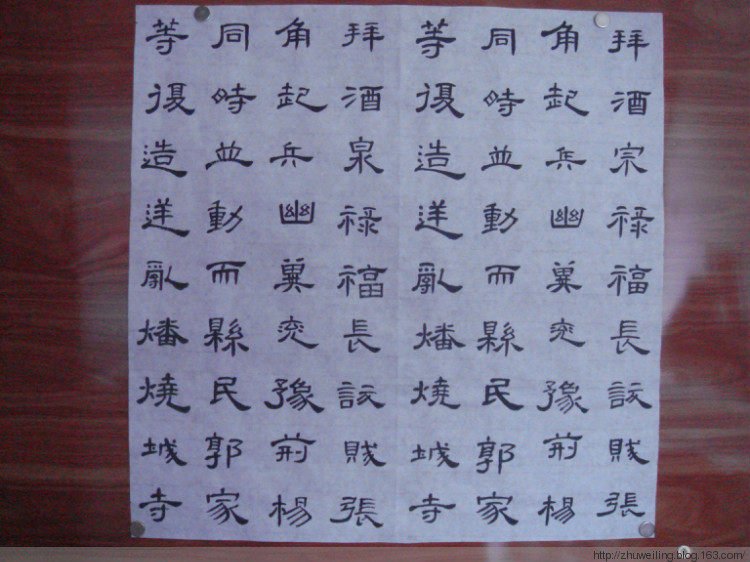 拜酒宗祿福長訞賊張
角起兵幽冀兗豫荊楊
同時並動而縣民郭家
等復造逆亂燔燒城寺
拜酒泉祿福長訞賊張
角起兵幽冀兗豫荊楊
同時並動而縣民郭家
等復造逆亂燔燒城寺
http://zhuweiling.blog.163.com/